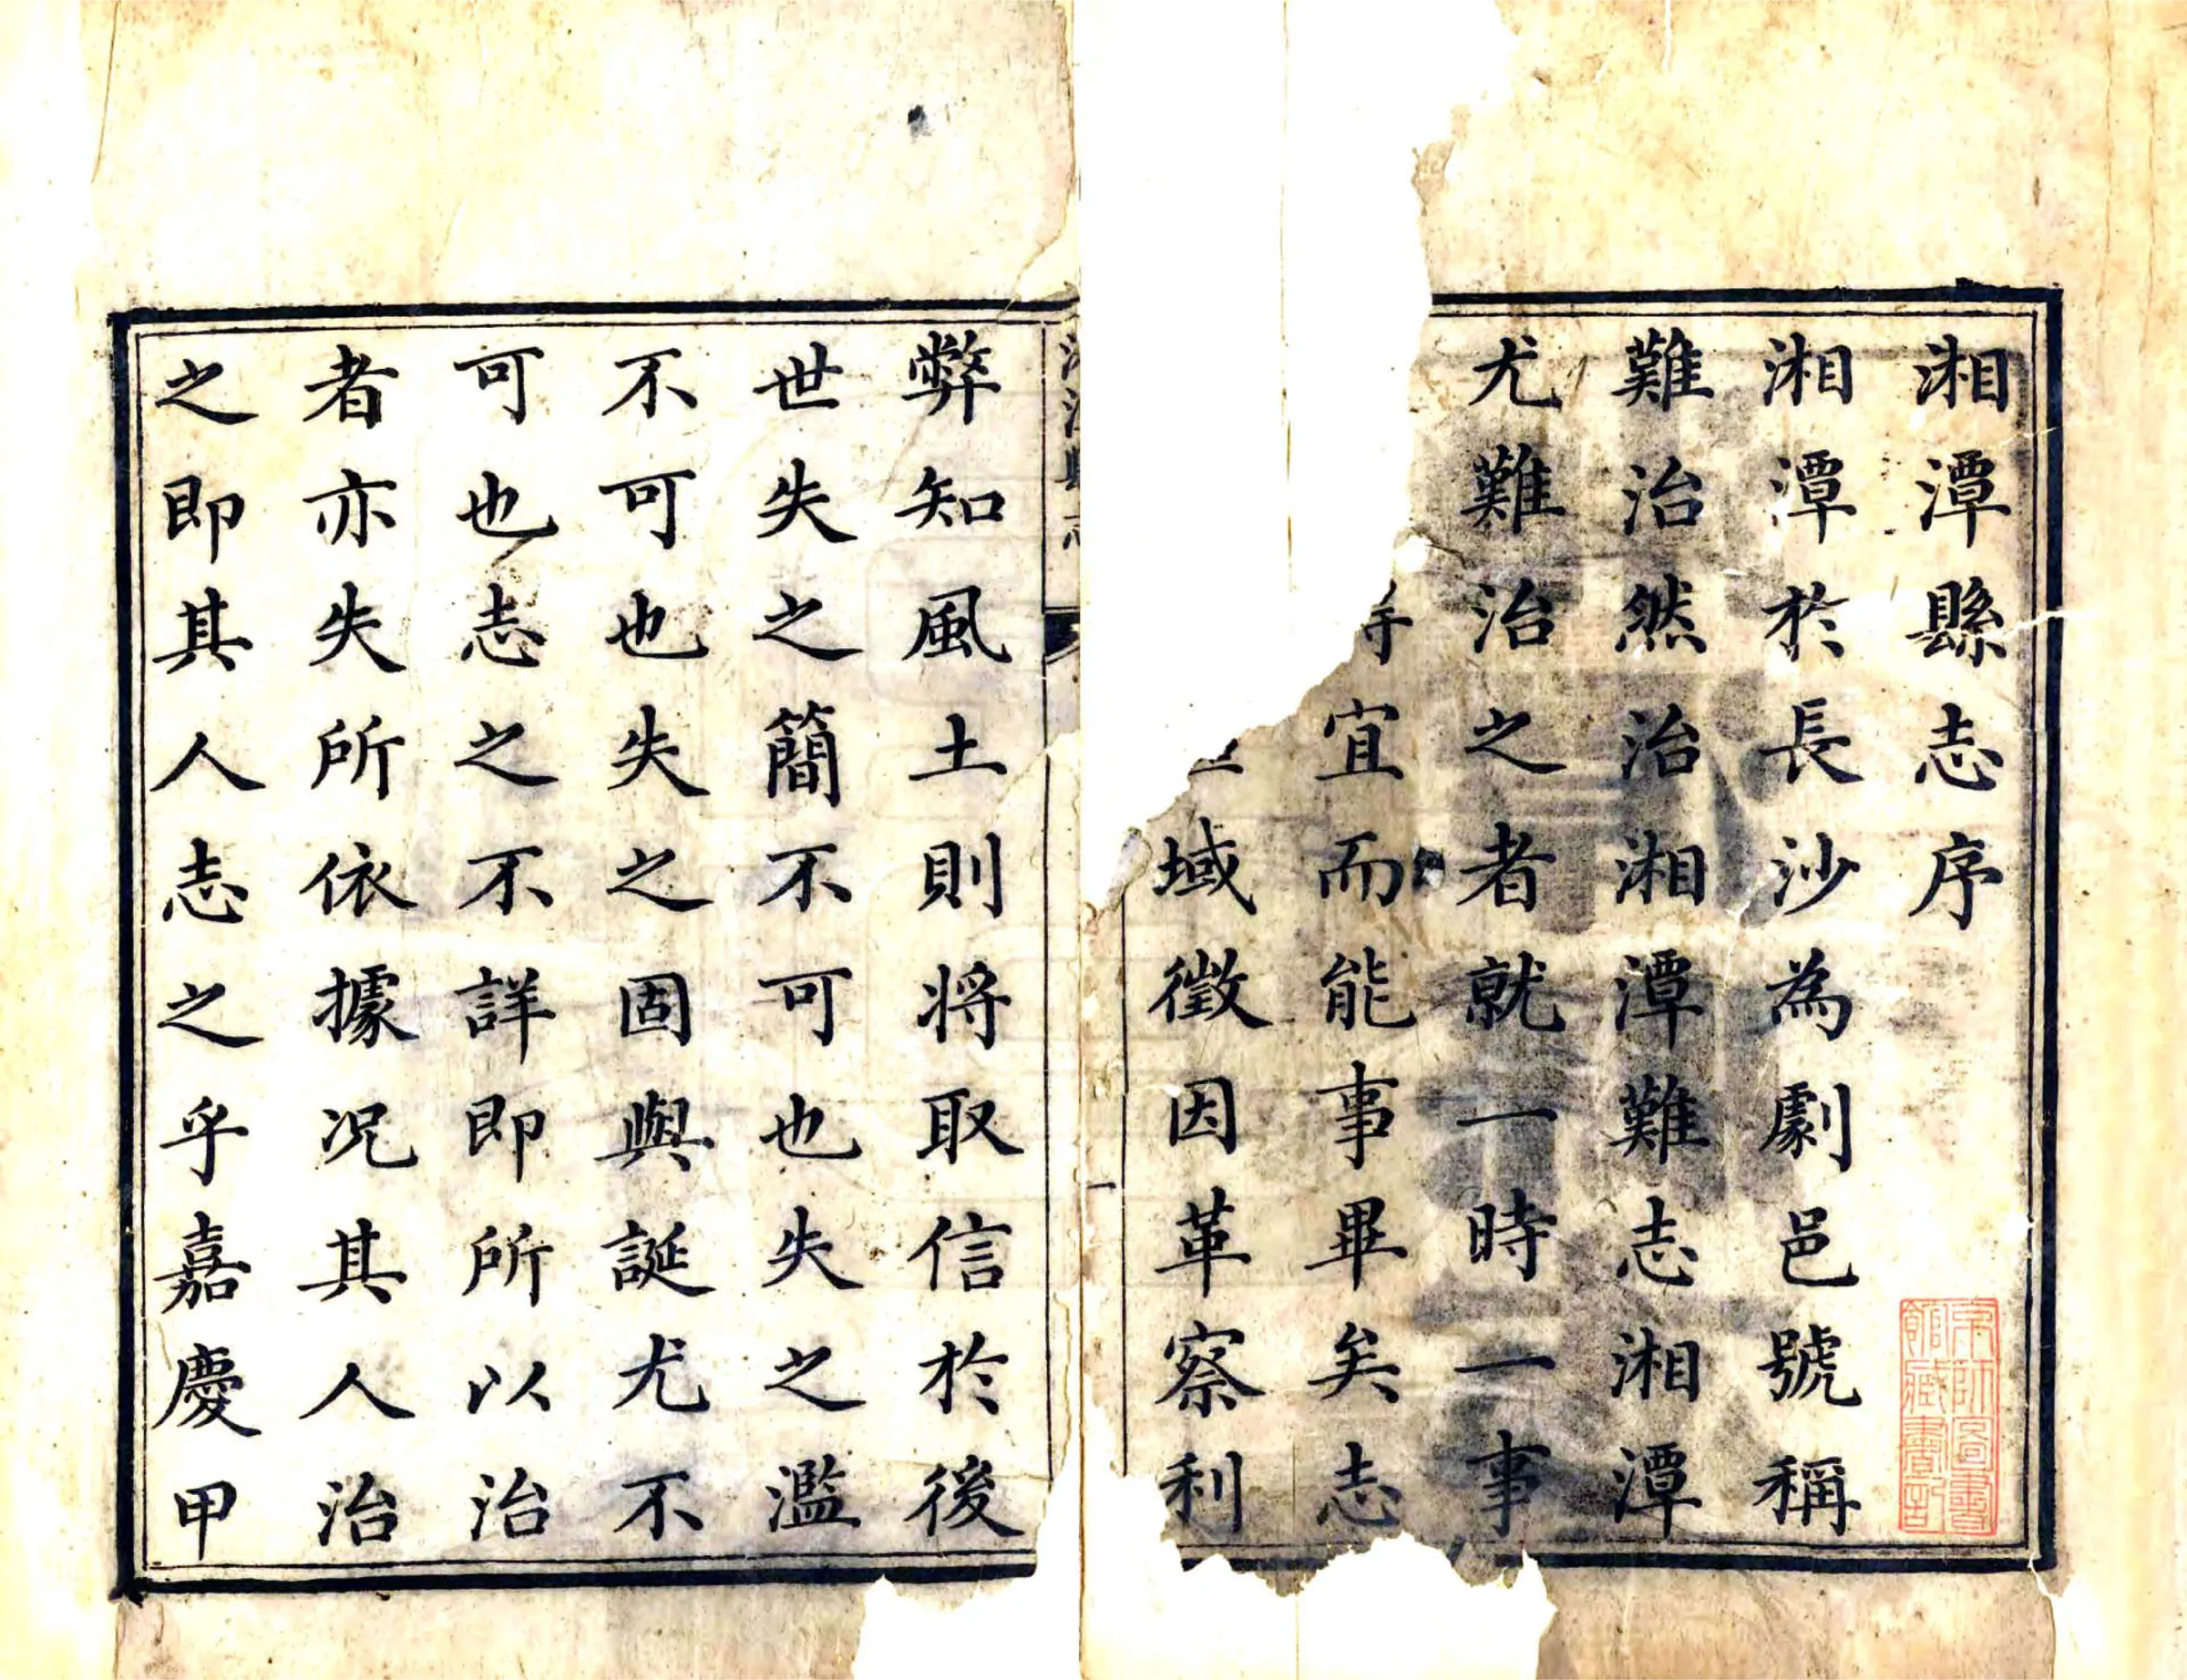 湘潭縣志序
湘潭於長沙為劇邑號稱
難治然治湘潭難志湘潭
尤難治之者就一時一事
宜而能事畢矣志
域徵因革察利
弊知風土則將取信於後
世失之簡不可也失之濫
不可也失之固與誕尤不
可也志之不詳即所以治
者亦失所依據况其人治
之即其人志之乎嘉慶甲
京師圖書
館藏書記